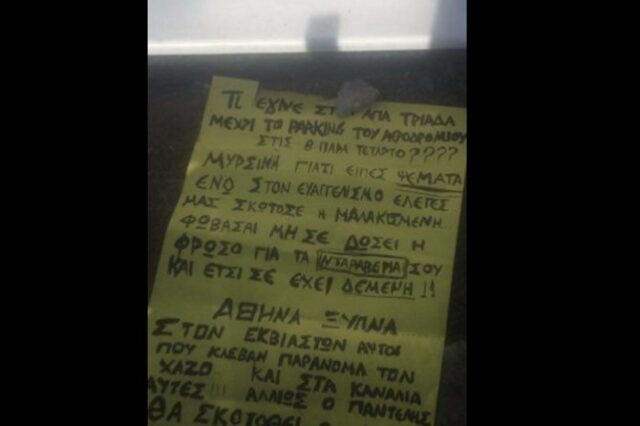 ΤΙ ΕΓΙΝΕ ΣΤ ΑΓΙΑ ΤΡΙΑΔΑ
ΜΕΧΡΙ ΤΟ PARKING ΤΟΥ ΑΕΡΟΔΡΟΜΙΟΥ
ΣΤΙΣ 8 ΠΑΡΑ ΤΕΤΑΡΤΟ????
ΜΥΡΣΙΝΗ ΓΙΑΤΙ ΕΙΠΕΣ ΨΕΜΑΤΑ
ΕΝΩ ΣΤΟΝ ΕΥΑΓΓΕΝΙΣΜΟ ΕΛΕΓΕΣ
ΜΑΣ ΣΚΟΤΟΣΕ Η ΜΑΛΑΚΙΣΜΕΝΗ
ΦΩΒΑΣΑΙ ΜΗ ΣΕ ΔΩΣΕΙ Η
ΦΡΩΣΟ ΓΙΑ ΤΑ ΝΤΑΡΑΒΕΡΙΑ ΣΟΥ
ΚΑΙ ΕΤΣΙ ΣΕ ΕΧΕΙ ΔΕΜΕΝΗ!!
ΑΘΗΝΑ ΞΥΠΝΑ
ΣΤΟΝ ΕΚΒΙΑΣΤΩΝ ΑΥΤΟΙ
ΠΟΥ ΚΛΕΒΑΝ ΠΑΡΑΝΟΜΑ ΤΟΝ
ΧΑΖΟ ΚΑΙ ΣΤΑ ΚΑΝΑΛΙΑ
ΑΥΤΕΣ!!! ΑΛΛΙΩΣ Ο ΠΑΝΤΕΛΗΣ
ΘΑ ΣΚΟΤΩΘΕΙ